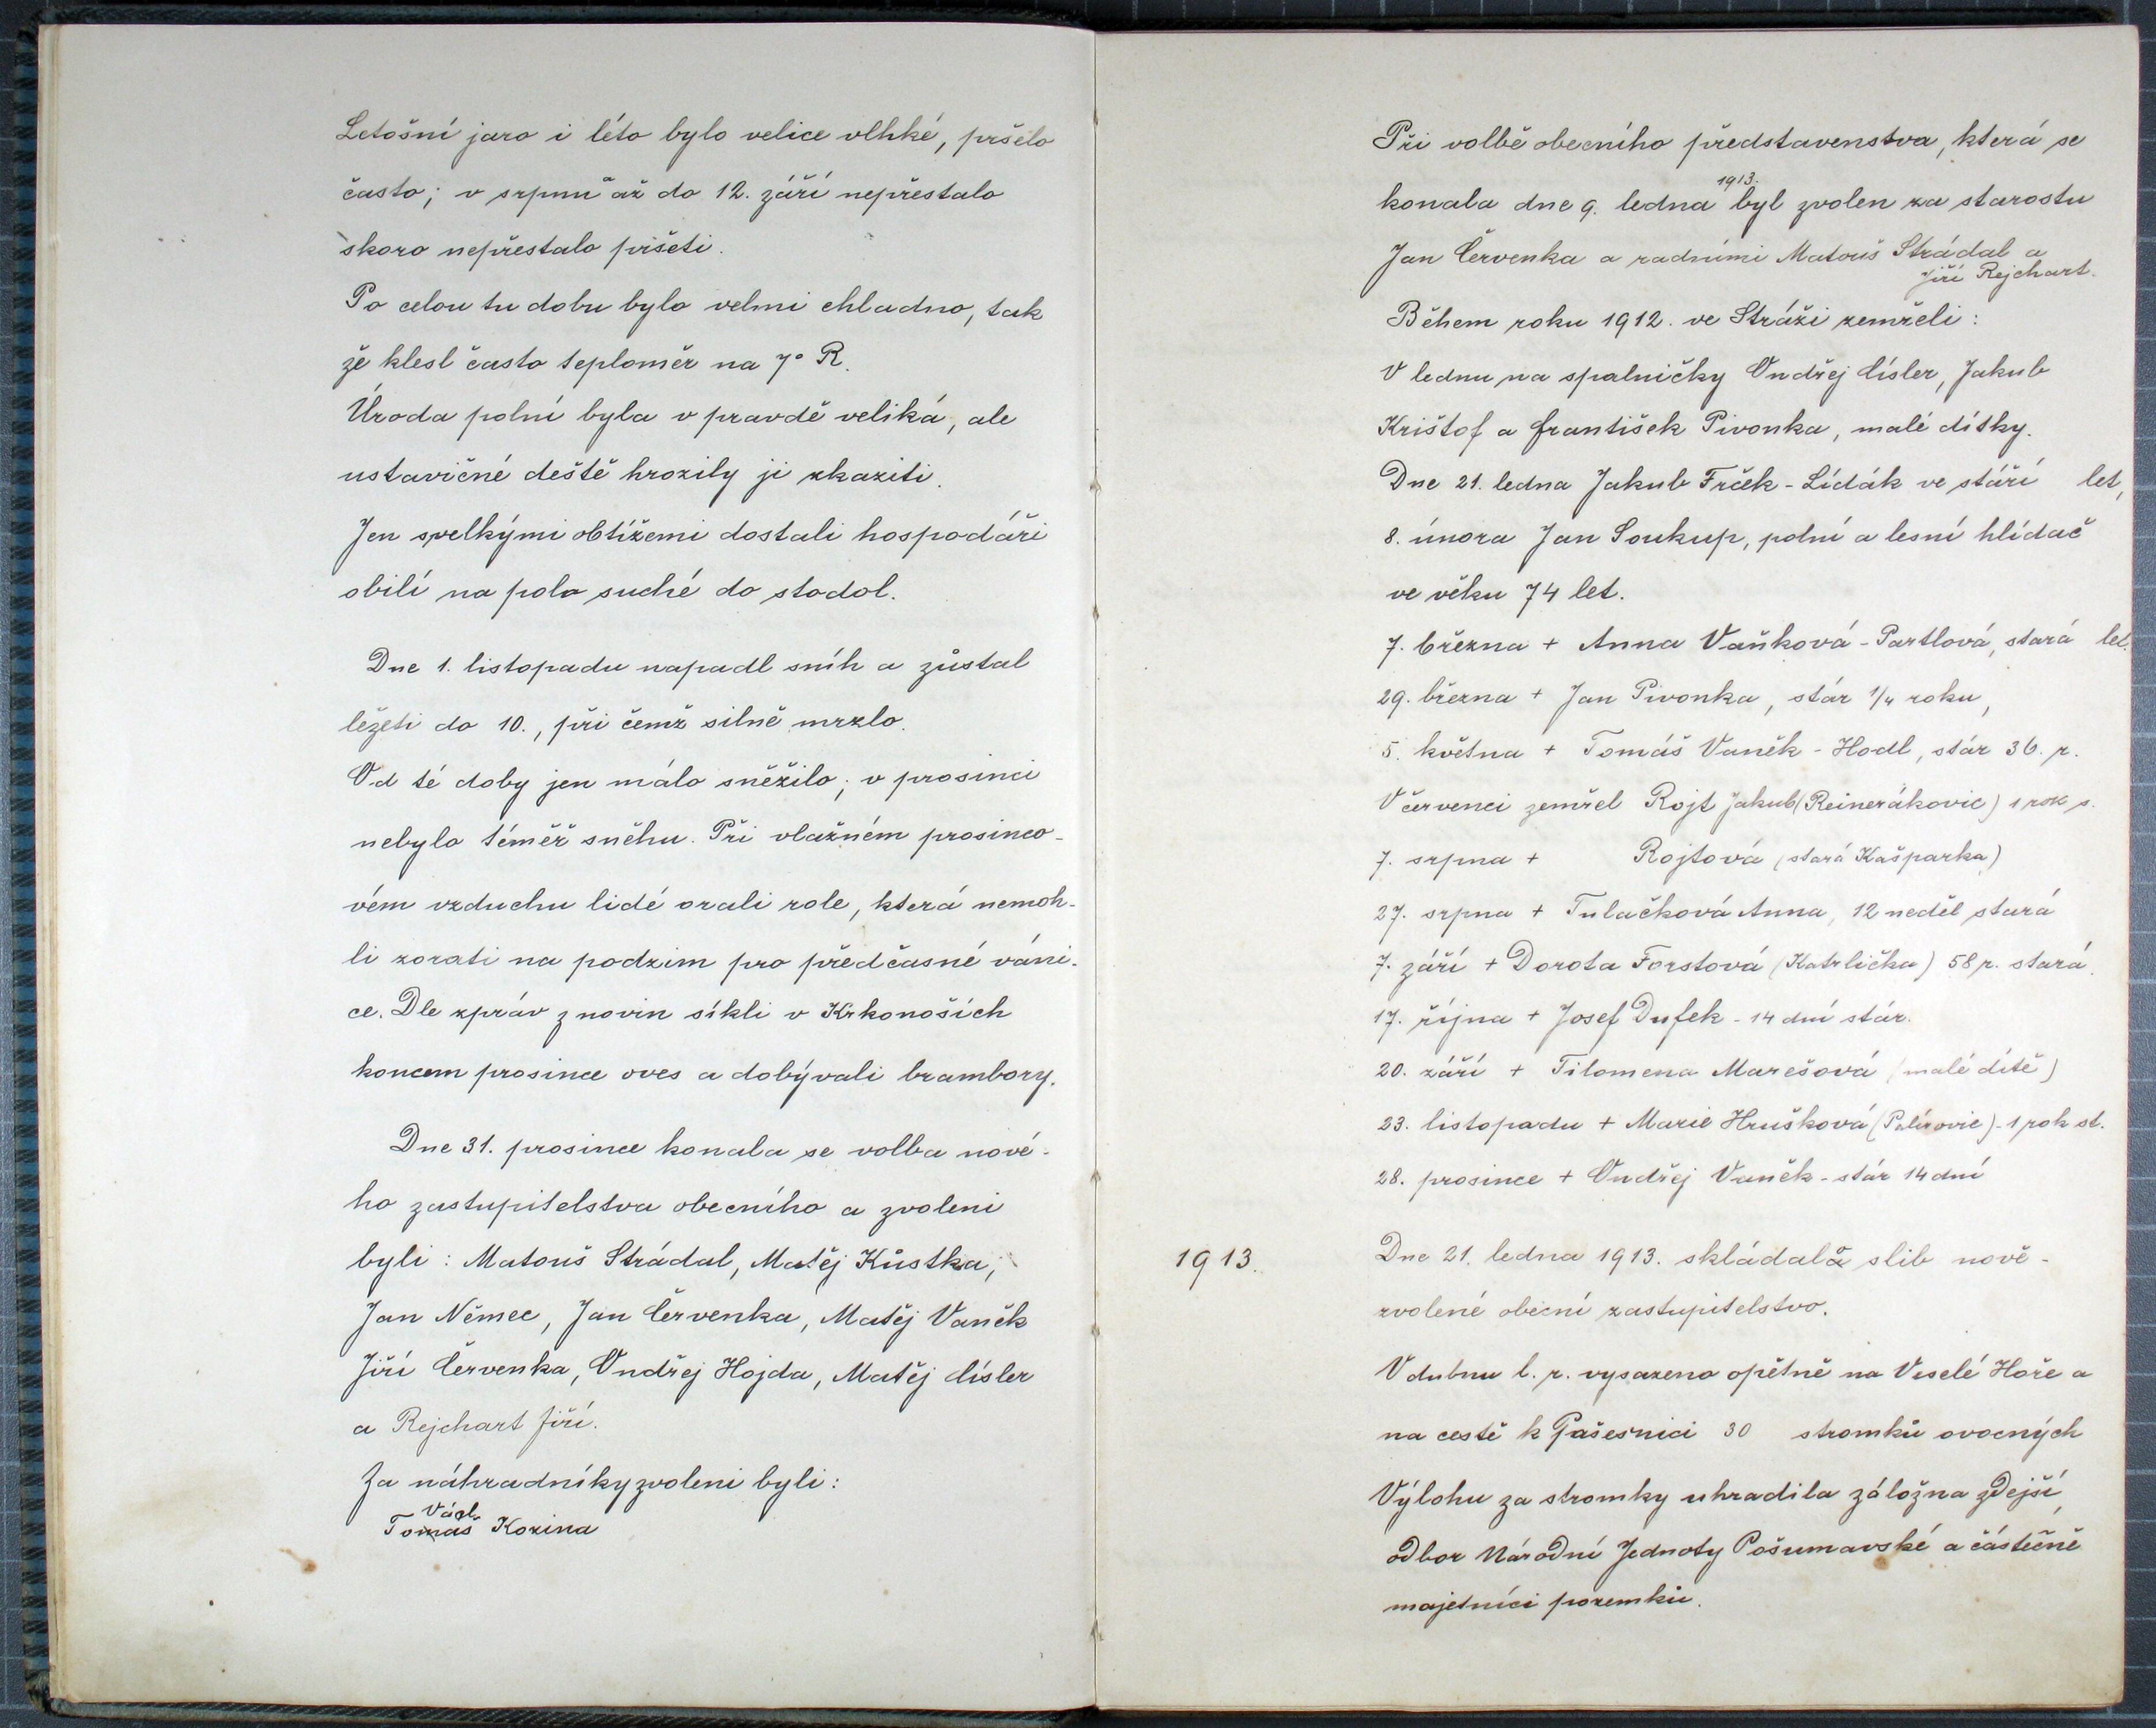 Letošní jaro i léto bylo velice vlhké, pršelo
často; v srpnu až do 12. září nepřestalo
skoro nepřestalo pršeti.
Po celou tu dobu bylo velmi chladno, tak
že klesl často teploměr na 7° R.
Úroda polní byla v pravdě veliká, ale
ustavičné deště hrozily ji zkaziti.
Jen s velkými obtížemi dostali hospodáři
obilí na polo suché do stodol.
Dne 1. listopadu napadl sníh a zůstal
ležeti do 10., při čemž silně mrzlo.
Od té doby jen málo sněžilo; v prosinci
nebylo téměř sněhu. Při vlažném prosinco-
vém vzduchu lidé orali role, která nemoh-
li zorati na podzim pro předčasné váni-
ce. Dle zpráv z novin síkli v Krkonoších
koncem prosince oves a dobývali brambory.
Dne 31. prosince konala se volba nové-
ho zastupitelstva obecního a zvoleni
byli: Matouš Strádal, Matěj Kůstka,
Jan Němec, Jan Červenka, Matěj Vaněk
Jiří Červenka, Ondřej Hojda, Matěj Císler
a Rejchart Jiří.
Za náhradníky zvoleni byli:
Václ.
Tomáš Kozina
Při volbě obecního představenstva, která se
konala dne 9. ledna 1913. byl zvolen za starostu
Jan Červenka a radními Matouš Strádal a
Jiří Rejchart.
Během roku 1912. ve Stráži zemřeli:
V lednu na spalničky Ondřej Císler, Jakub
Krištof a František Pivonka, malé dítky.
Dne 21. ledna Jakub Frček - Lídák ve stáří let,
8. února Jan Soukup, polní a lesní hlídač
ve věku 74 let.
7. března + Anna Vaňková - Partlová, stará let.
29. března + Jan Pivonka, stár 1/4 roku,
5. května + Tomáš Vaněk - Hodl, stár 36. r.
V červenci zemřel Rojt Jakub (Reinerákovic) 1 rok s.
7. srpna + Rojtová (stará Kašparka)
27. srpna + Tulačková Anna, 12 neděl stará
7. září + Dorota Forstová (Katrlička) 58 r. stará.
17. října + Josef Dufek - 14 dní stár.
20. září + Filomena Marešová (malé dítě)
23. listopadu + Marie Hrušková (Palírovic) - 1 rok st.
28. prosince + Ondřej Vaněk - stár 14 dní
1913.
Dne 21. ledna 1913. skládala slib nově-
zvolené obecní zastupitelstvo.
V dubnu l. r. vysazeno opětně na Veselé Hoře a
na cestě k Pašesnici 30 stromků ovocných
Výlohu za stromky uhradila záložna zdejší,
odbor Národní Jednoty Pošumavské a částečně
majetníci pozemků.